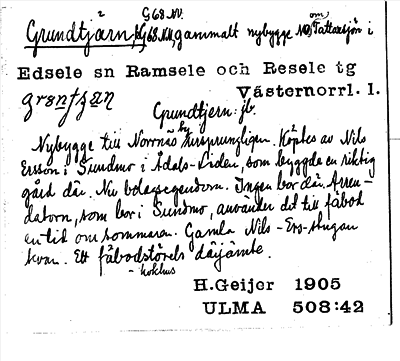 G68.NV.
Grundtjärn, G68.NV, gammalt nybygge NO om Tattarsjön i
Edsele sn Ramsele och Resele tg
Västernorrl. l.
Grundtjern: jb.
Nybygge till Norrnäs by ursprungligen. Köptes av Nils
Ersson i Sundmo i Ådals-Liden, som byggde en riktig
gård där. Nu bolagsegendom. Ingen bor där. Arren-
datorn, som bor i Sundmo, använder det till fäbod
en tid om sommaren. Gamla Nils-Ers-stugan
kvar. Ett fäbodställes därjämte.
- kokhus
H.Geijer 1905
ULMA 508:42